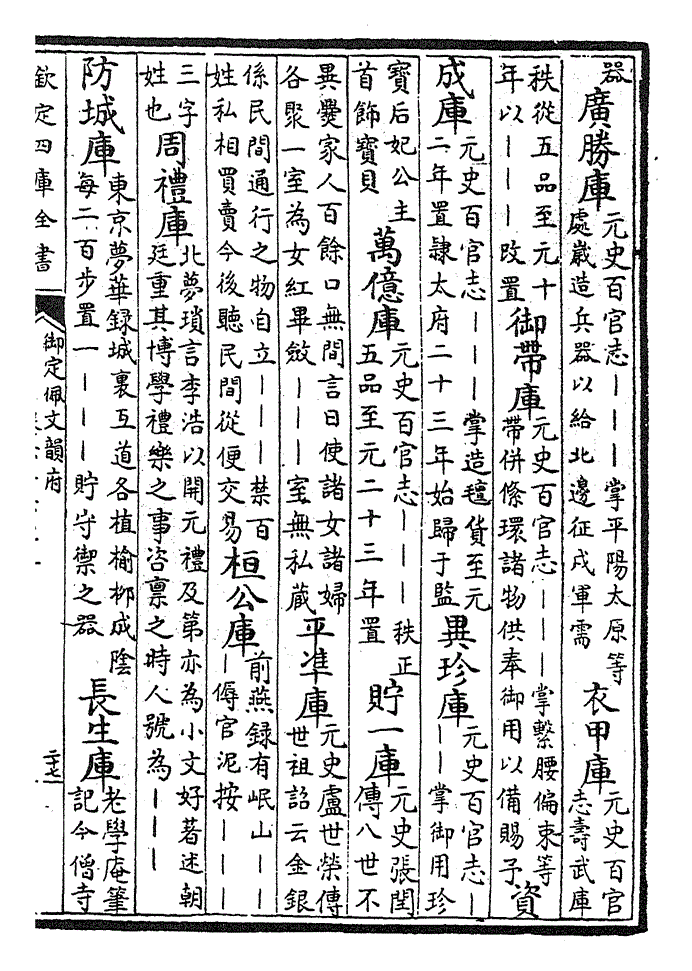 器廣勝庫元史百官志｜｜｜掌平陽太原等處歲造兵器以給北邊征戍軍需衣甲庫元史百官志壽武庫
秩從五品至元十年以｜｜｜改置御帶庫元史百官志｜｜｜掌繫腰偏束等帶併絛環諸物供奉御用以備賜予資
成庫元史百官志｜｜｜掌造氊貨至元二年置隸太府二十三年始歸于監異珍庫元史百官志｜｜｜掌御用珍
寶后妃公主首飾寶貝萬億庫元史百官志｜｜｜秩正五品至元二十三年置貯一庫元史張閏傳八世不
異爨家人百餘口無間言日使諸女諸婦各聚一室為女紅畢斂｜｜｜室無私藏平準庫元史盧世榮傳世祖詔云金銀
係民間通行之物自立｜｜｜禁百姓私相買賣今後聽民間從便交易桓公庫前燕録有岷山｜｜｜官泥按｜｜｜
三字姓也周禮庫北夢瑣言李浩以開元禮及第亦為小文好著述朝廷重其博學禮樂之事咨禀之時人號為｜｜｜
防城庫東京夢華録城裏互道各植榆柳成陰每二百步置一｜｜｜貯守禦之器長生庫老學庵筆記今僧寺
欽定四庫全書
御定佩文韻府
二十七